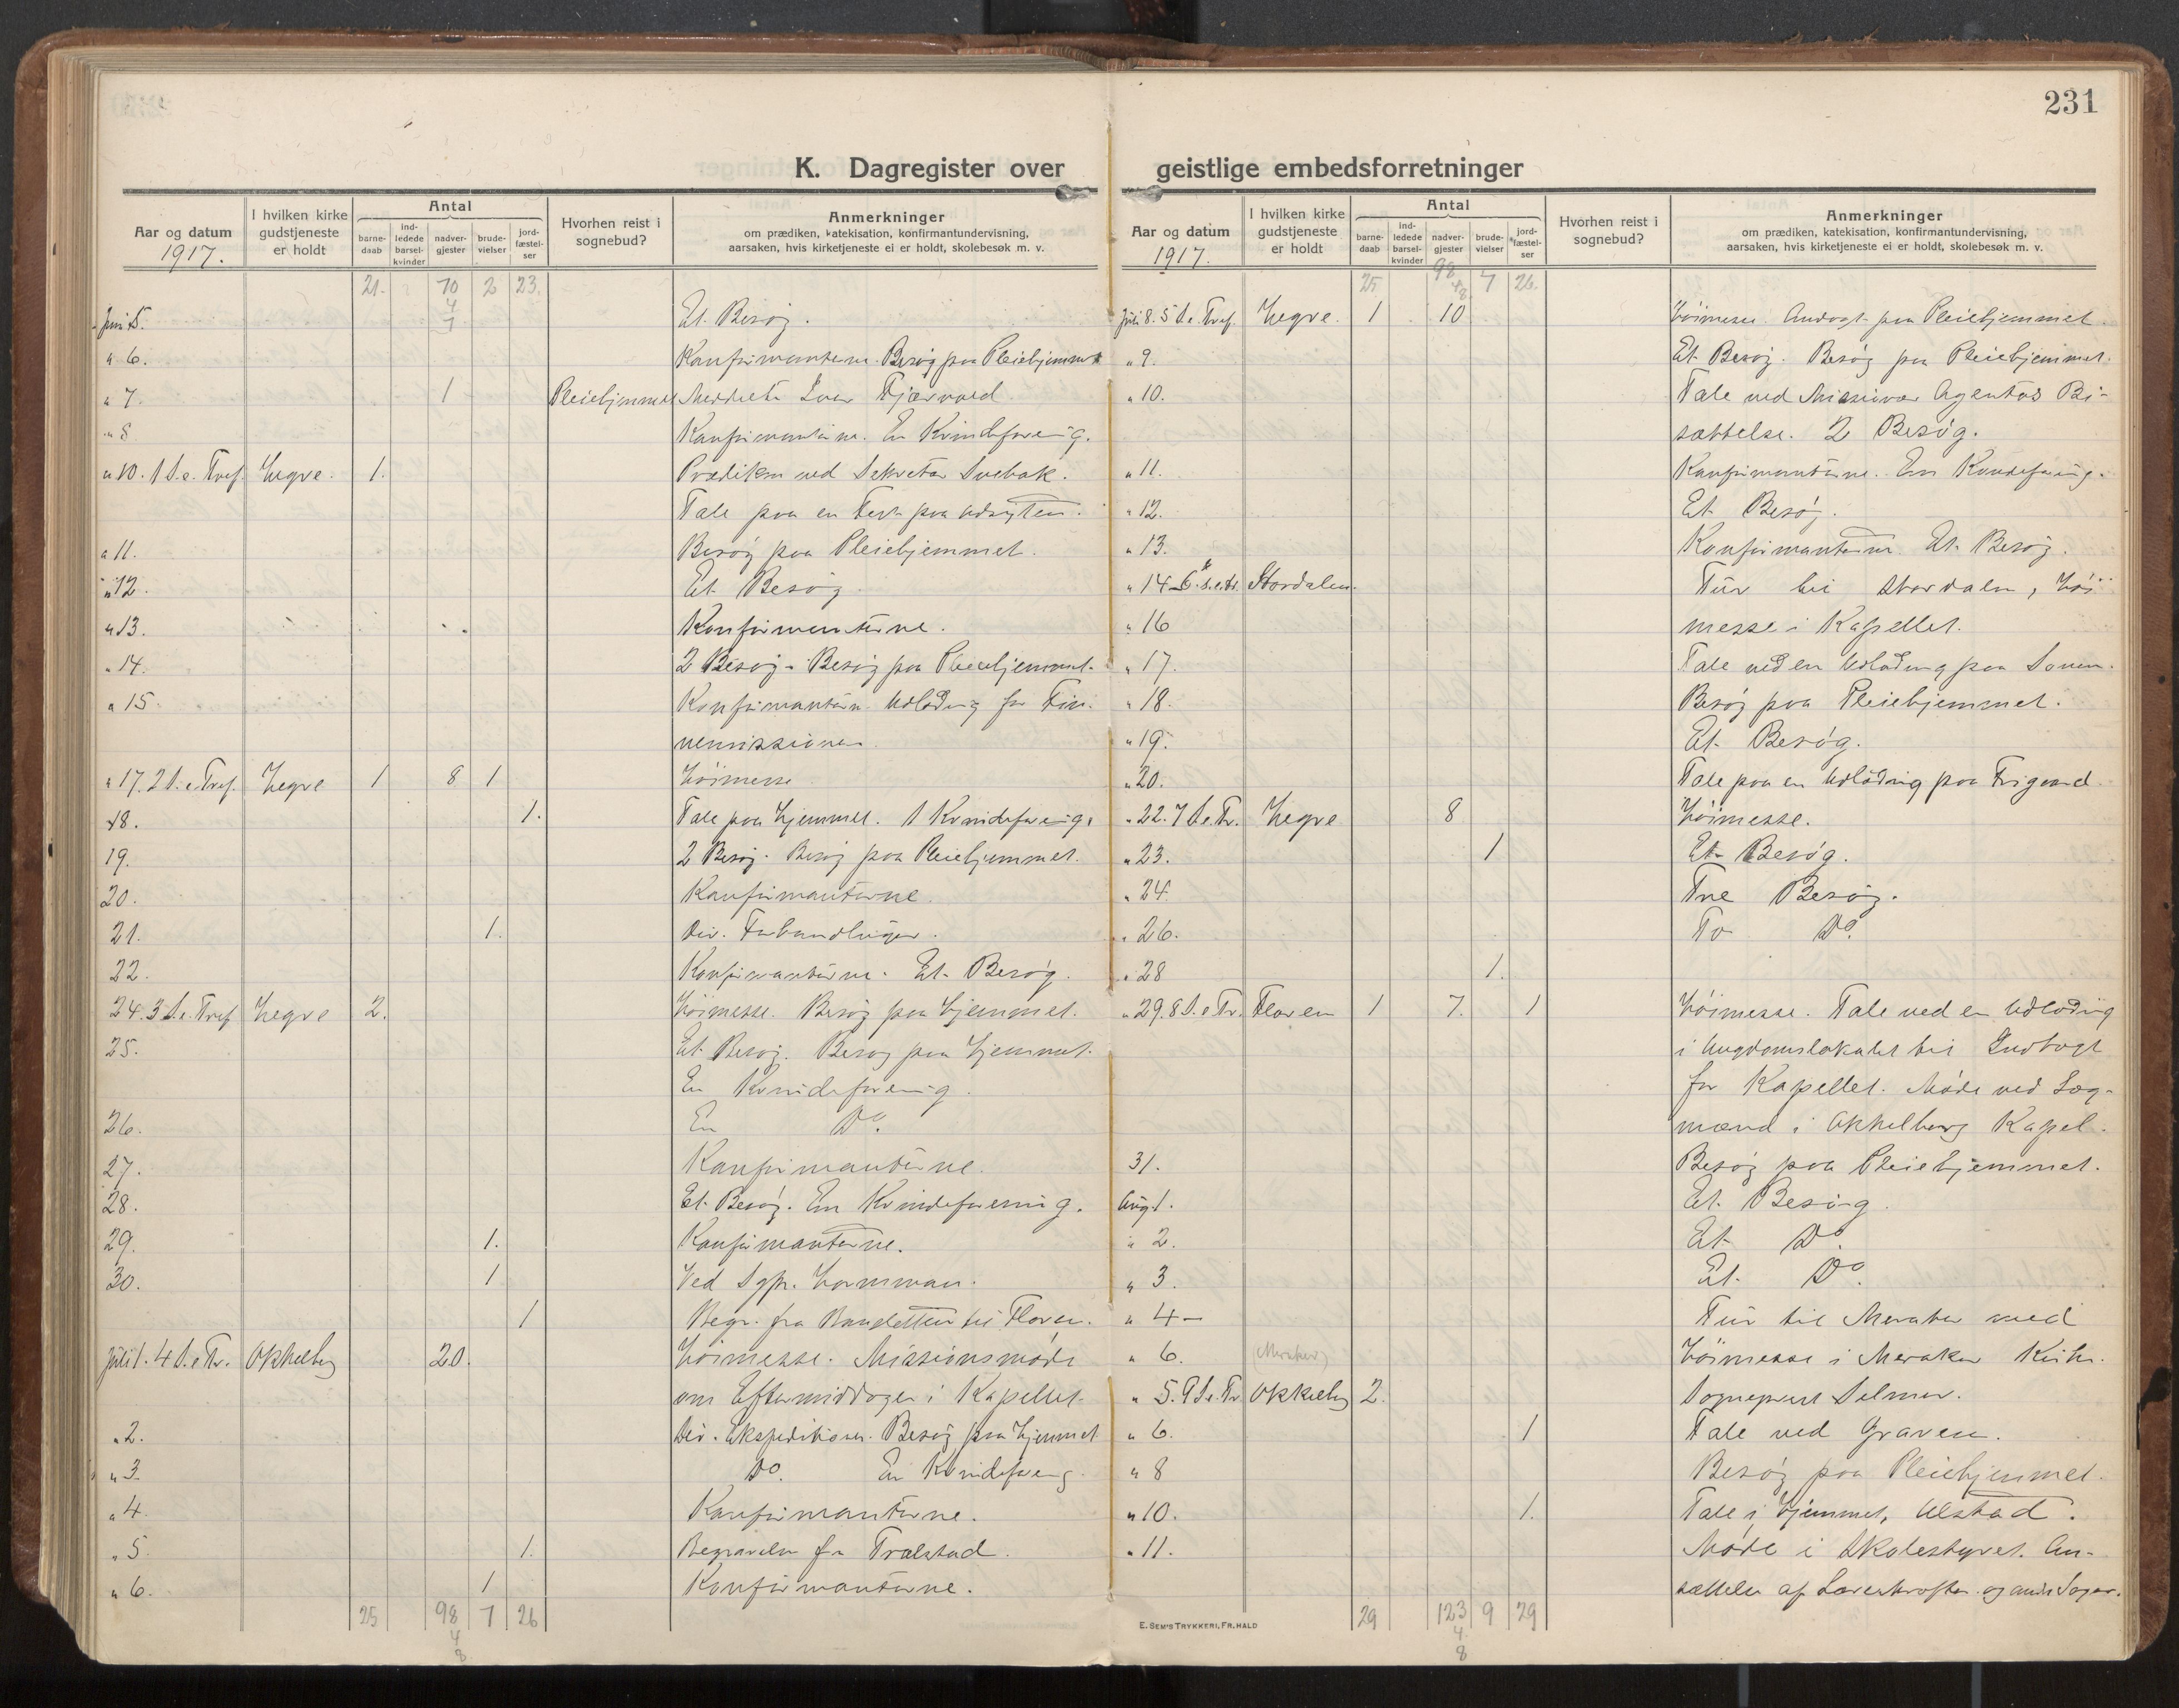 231
K. Dagregister over geistlige embedsforretninger
Aar og datum 1917. | I hvilken kirke gudstjeneste er holdt | Antal | barne-daab | ind-ledede barsel-kvinder | nadver-gjester | brude-vielser | jord-fæstel-ser | Hvorhen reist i sognebud? | Anmerkninger om prædiken, katekisation, konfirmantundervisning, aarsaken, hvis kirketjeneste ei er holdt, skolebesøk m. v.
21. 70 2 23.
4
Juni 5. 1 Et Besøg.
" 6. Konfirmanterne. Besøg paa Pleiehjemmet
" 7. 1 Pleiehjemmet
" 8 Konfirmanterne. En Kvindeforening.
" 10. 1 S. e. Tref. Hegre. 1. Prædiken ved Sekretær Svebak.
Tale paa en Fest paa
" 11. Besøg paa Pleiehjemmet.
" 12. Et Besøg
" 13. Konfirmanterne.
" 14. 2 Besøg. Besøg paa Pleiehjemmet.
" 15. Konfirmanterne. Udlodning for Fin-
nemissionen
" 17. 2 S. e. Tref. Hegre 1 8 1 Høimesse
18. 1. Tale paa Hjemmet. 1 Kvindeforening.
19. 2 Besøg. Besøg paa Pleiehjemmet.
20. Konfirmanterne.
21. 1. Div. Forhandlinger.
22. Konfirmanterne. Et Besøg.
24. 3 S. e. Tref. Hegre 2. Høimesse. Besøg paa Hjemmet.
25. Et Besøg. Besøg paa Hjemmet.
En Kvindeforening.
26. En Do.
27. Konfirmanterne.
28. Et Besøg. En Kvindeforening.
29. 1. Konfirmanterne.
30. 1 Ved Sgpr.
1 Begr. fra til Floren.
Juli 1. 4 S. e. Tr. Okkelberg 20. Høimesse. Missionsmøde
om Eftermiddagen i Kapellet.
" 2. Div. Ekspeditioner. Besøg paa Hjemmet
" 3. Do. En Kvindeforening.
" 4. Konfirmanterne.
" 5. 1. Begravelse fra
" 6. 1 Konfirmanterne.
25 98 7 26
4
8
Aar og datum 1917. | I hvilken kirke gudstjeneste er holdt | Antal | barne-daab | ind-ledede barsel-kvinder | nadver-gjester | brude-vielser | jord-fæstel-ser | Hvorhen reist i sognebud? | Anmerkninger om prædiken, katekisation, konfirmantundervisning, aarsaken, hvis kirketjeneste ei er holdt, skolebesøk m. v.
25 98 7 26.
4 8
Juli 8. 5 S. e. Tref. Hegre. 1 10 Høimesse. Andagt paa Pleiehjemmet.
" 9. Et Besøg. Besøg paa Pleiehjemmet.
" 10. Tale ved
sættelse. 2 Besøg.
" 11. Konfirmanterne. En Kvindeforening.
" 12. Et Besøg.
" 13. Konfirmanterne. Et Besøg.
" 14- 6. s. e. tr. Stordalen. Tur til Stordalen, Høi-
" 16 messe i Kapellet.
" 17. Tale ved en Udlodning paa
" 18. Besøg paa Pleiehjemmet.
" 19. Et Besøg.
" 20. Tale paa en Udlodning paa Frigaard.
" 22. 7 S. e. Tr. Hegre 8 Høimesse.
" 23. 1 Et Besøg.
" 24. Tre Besøg.
" 26. To Do.
" 28 1.
" 29. 8 S. e. Tr. Floren 1 7. 1 Høimesse. Tale ved en Udlodning
i Ungdomslokalet til Indtægt
for Kapellet. Møde ved Læg-
mænd i Okkelberg Kapel.
31. Besøg paa Pleiehjemmet.
Aug. 1. Et Besøg.
" 2. Et Do.
" 3. Et Do.
" 4- Tur til Meraker med
" 6. (Meraker) Høimesse i Meraker Kirke.
" 5. 9 S. e. Tr. Okkelberg 2. Sogneprest Selmer.
" 6. 1 Tale ved Graven.
" 8 Besøg paa Pleiehjemmet.
" 10. 1. Tale i Hjemmet, Ulstad.
" 11. Møde i Skolestyret. An-
sættelse af Lærerkræfter og andre Sager.
29 123 9 29
4
8
E. SEM'S TRYKKERI, FR.HALD